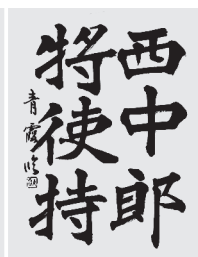 西中郎
将使持
青霞临